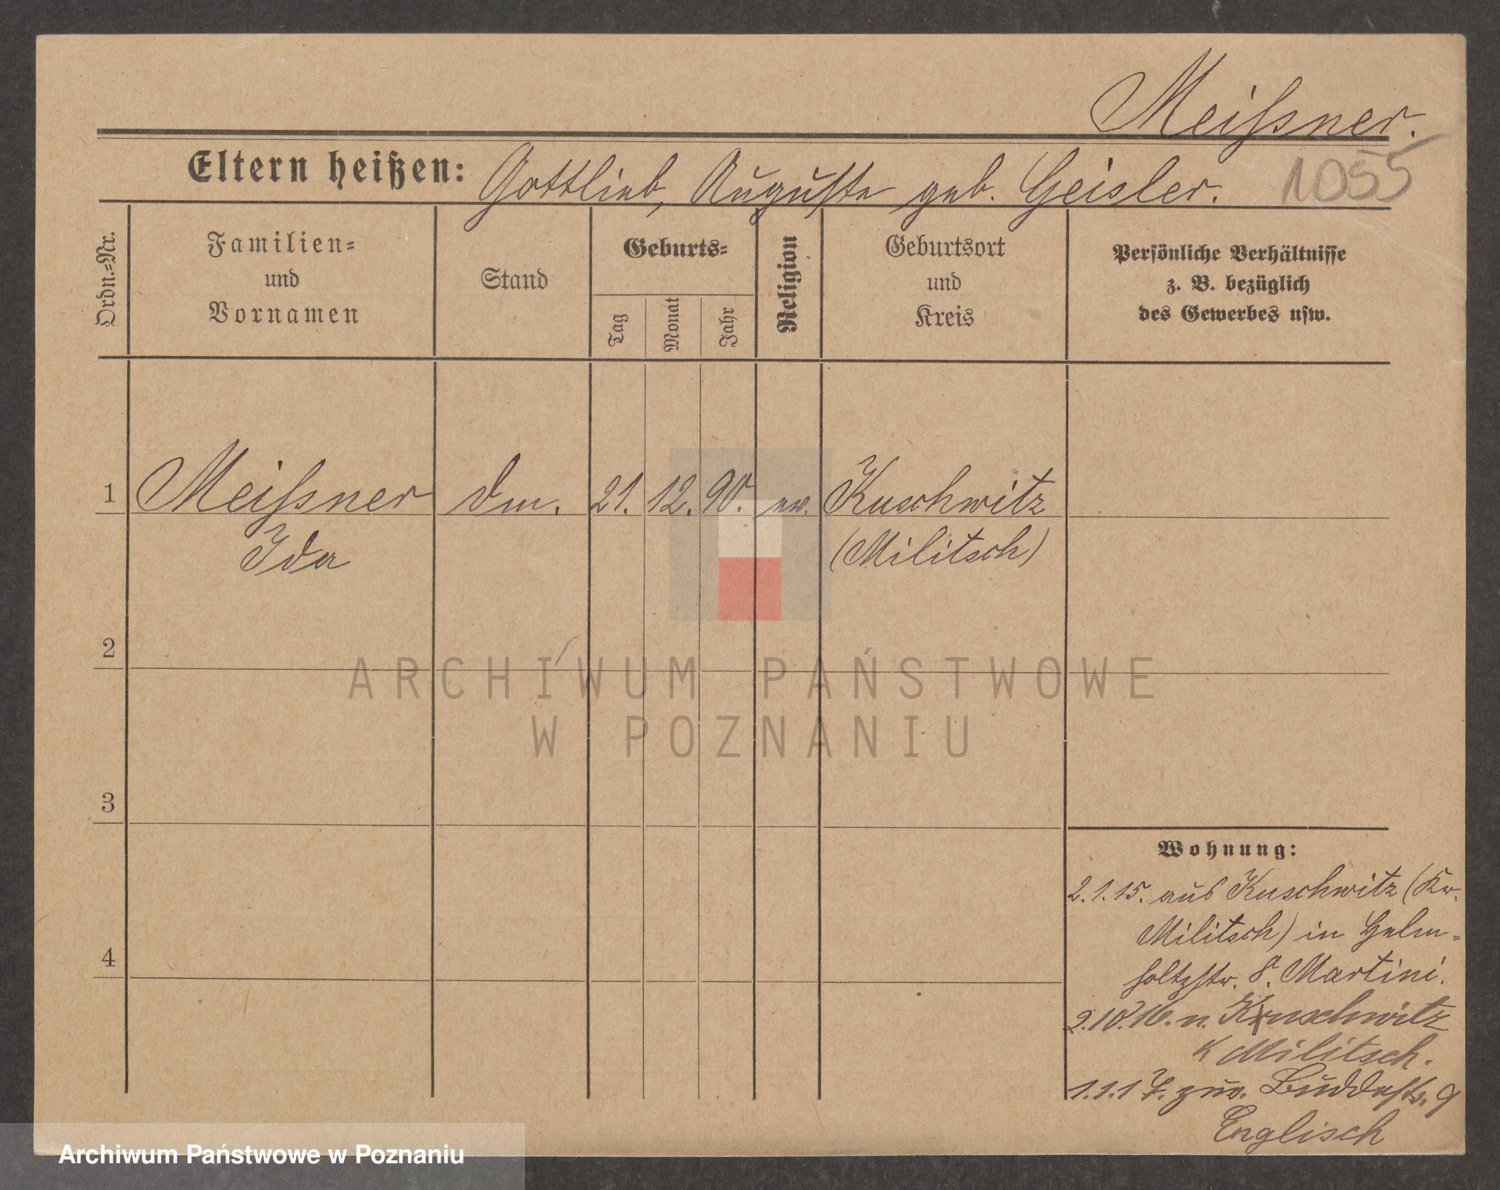 Meißner.
Eltern heißen: Gottlieb, Auguste geb. Geisler.
1055
Ordn.=Nr.
Familien=
und
Vornamen
Stand
Geburts=
Tag
Monat
Jahr
Religion
Geburtsort
und
Kreis
Persönliche Verhältnisse
z. B. bezüglich
des Gewerbes usw.
1 Meißner Dm. 21. 12. 90. ev. Kuschwitz
Ida (Militsch)
2
3
4
Wohnung:
2.1.15. aus Kuschwitz (Kr.
Militsch) in Helm=
holtzstr. 8. Martini.
2.10.16. n. Kuschwitz
K Militsch.
1.1.17. zur. Buddestr. 9
Englisch
ARCHIWUM PAŃSTWOWE
W POZNANIU
Archiwum Państwowe w Poznaniu